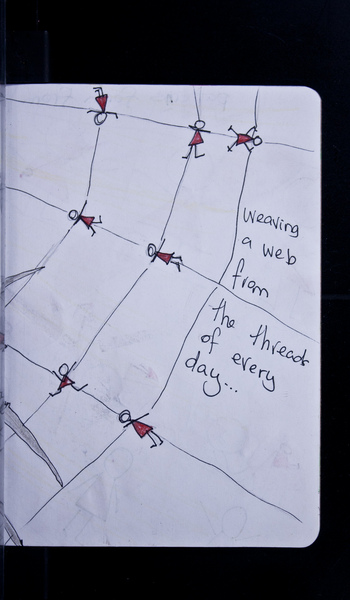 weaving
a web
from
the threads
of every
day...